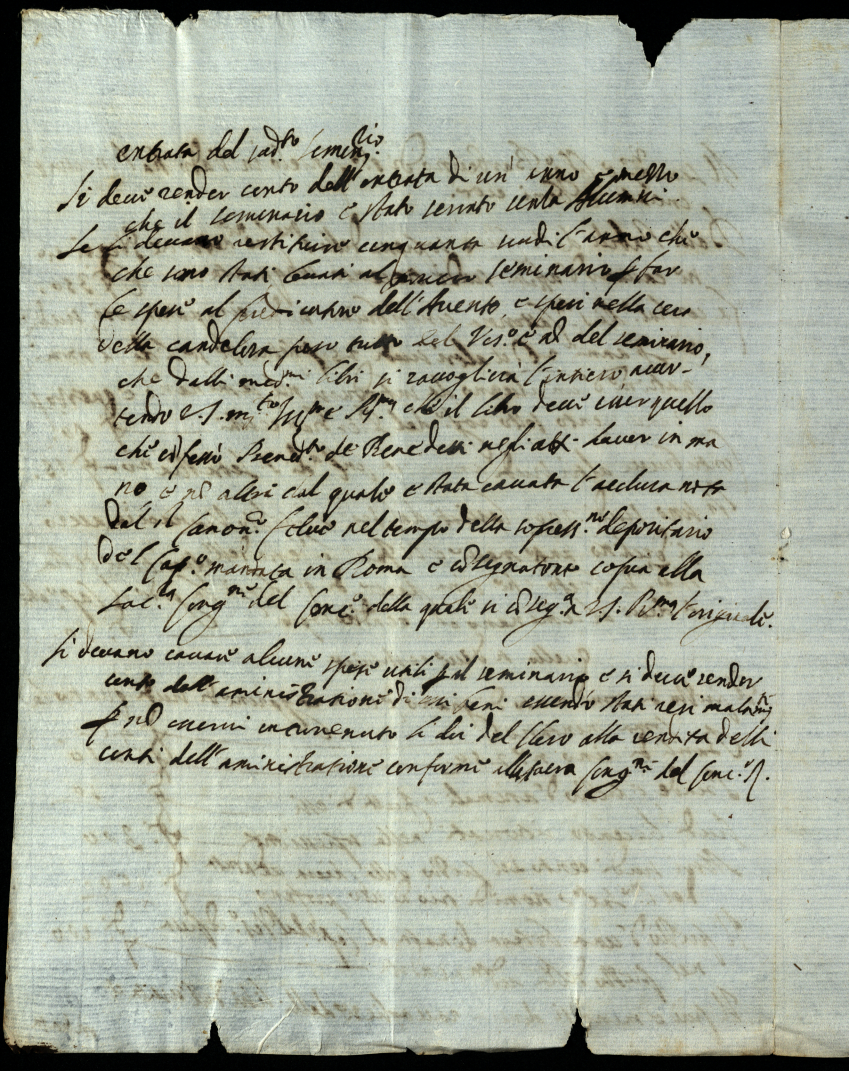 entrata del sud.to semin.rio
Si deve render conto dell'entrata di un' anno e mezzo
che il seminario è stato serrato senza Alumni.
Se li devano restituire cinquanta scudi l'anno che
che sono stati levati al seminario p far
le spese al predicatore dell'Avento, e spesi nella cera
della candelora peso tutto del Ves.o e nõ del seminario,
che dalli med.mi libri si raccoglierà l'intiero, auer-
tendo V.S. m.to Ill.re e R.ma che il libro deve esser quello
che Bened.to de Benedetti negli atti haver in ma
no e nõ altri dal quale è stata cavata l'acclusa nota
dal Canon.co nel tempo della depositario
del Cap.o mandata in Roma e cõsegnatone copia alla
Sac.ra Cong.ne del Conc.o della quale si cõseg.a a V.S. R.ma l'originale.
Si devano cavare alcune spese utili p il seminario e si deve render
conto dell'aministratione di beni essendo stati resi
p nõ esservi intervenuto li dui del Clero alla rendita delli
conti dell'aministratione conforme alla sacra Cong.ne del Conc.o